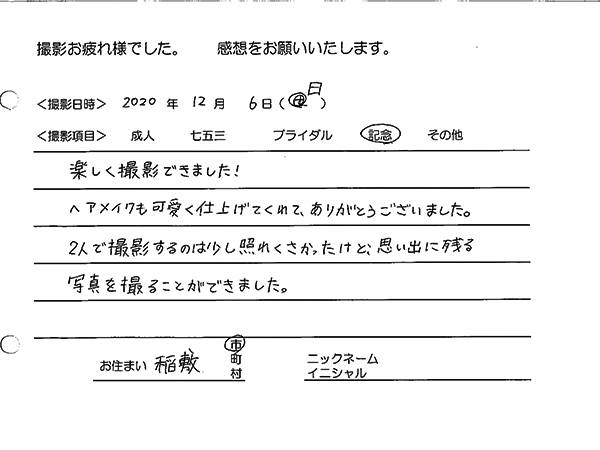 撮影お疲れ様でした。 感想をお願いいたします。
<撮影日時> 2020 年 12 月 6日(日)
<撮影項目> 成人 七五三 ブライダル 記念 その他
楽しく撮影できました!
ヘアメイクも可愛く仕上げてくれて、ありがとうございました。
2人で撮影するのは少し照れくさかったけど、思い出に残る
写真を撮ることができました。
お住まい 稲敷 市 町 村
ニックネーム
イニシャル